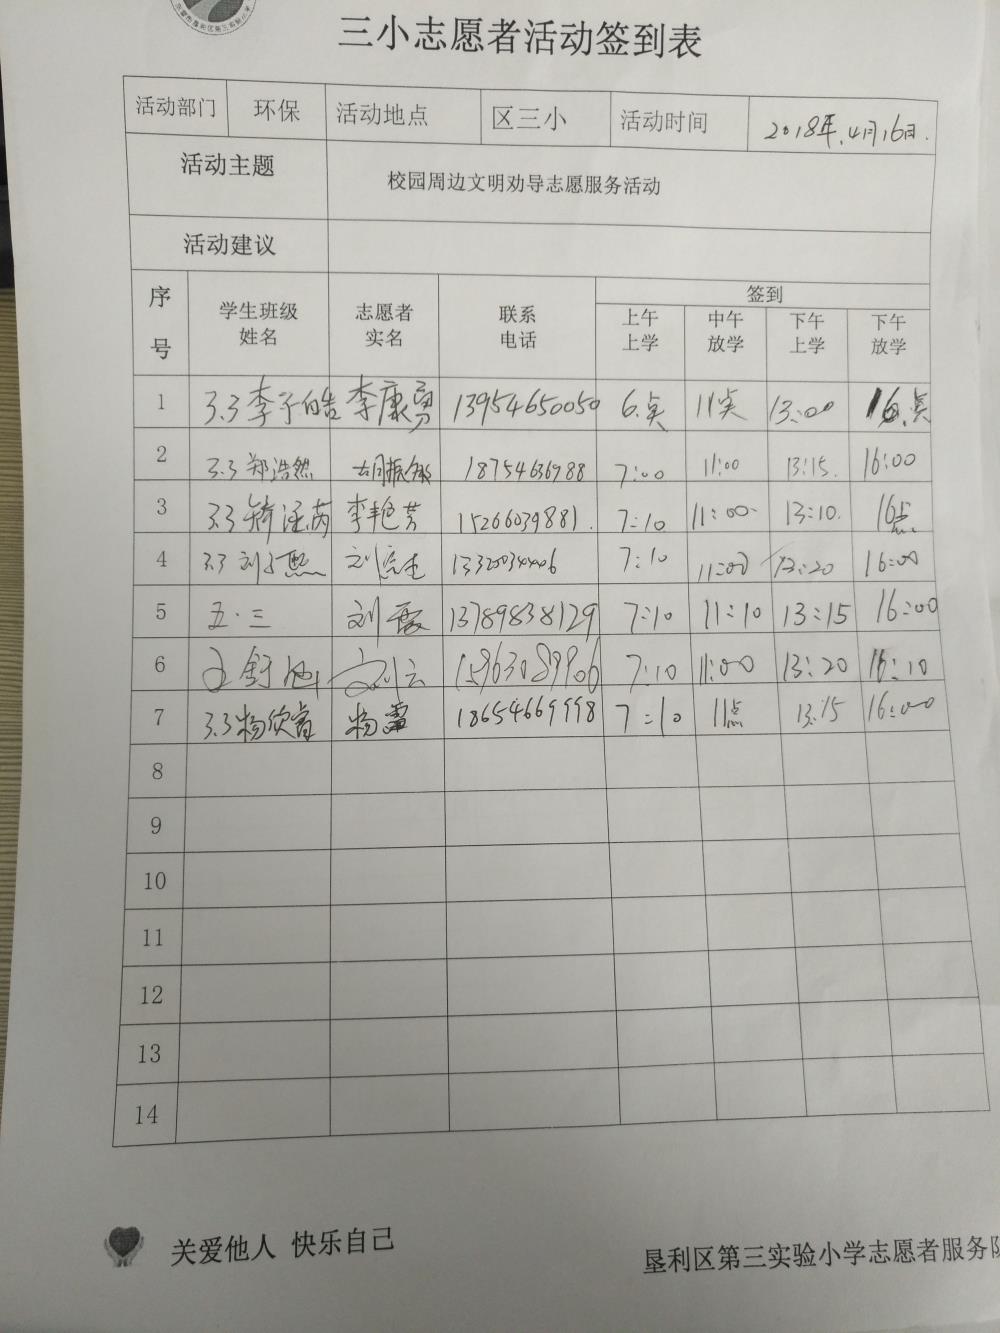 三小志愿者活动签到表
活动部门 环保 活动地点 区三小 活动时间 2018年.4月16日.
活动主题 校园周边文明劝导志愿服务活动
活动建议
序号 学生班级姓名 志愿者实名 联系电话 签到
上午上学 中午放学 下午上学 下午放学
1 3.3李子皓 李康勇 13954650050 6.点 11点 13:00 16.点
2 3.3郑浩然 胡振敏 18754636988 7:00 11:00 13:15. 16:00
3 3.3 涵芮 李艳芳 15266039881. 7:10 11:00 13:10. 16点
4 3.3刘子熙 刘 13320034406 7:10 11:00 13:20 16:00
5 五·三 刘霞 13789838129 7:10 11:10 13:15 16:00
6 王舒 刘云 15963089906 7:10 11:00 13:20 16:10
7 3.3杨欣睿 杨雷 18654669998 7:10 11点 13:15 16:00
8
9
10
11
12
13
14
关爱他人 快乐自己
垦利区第三实验小学志愿者服务队